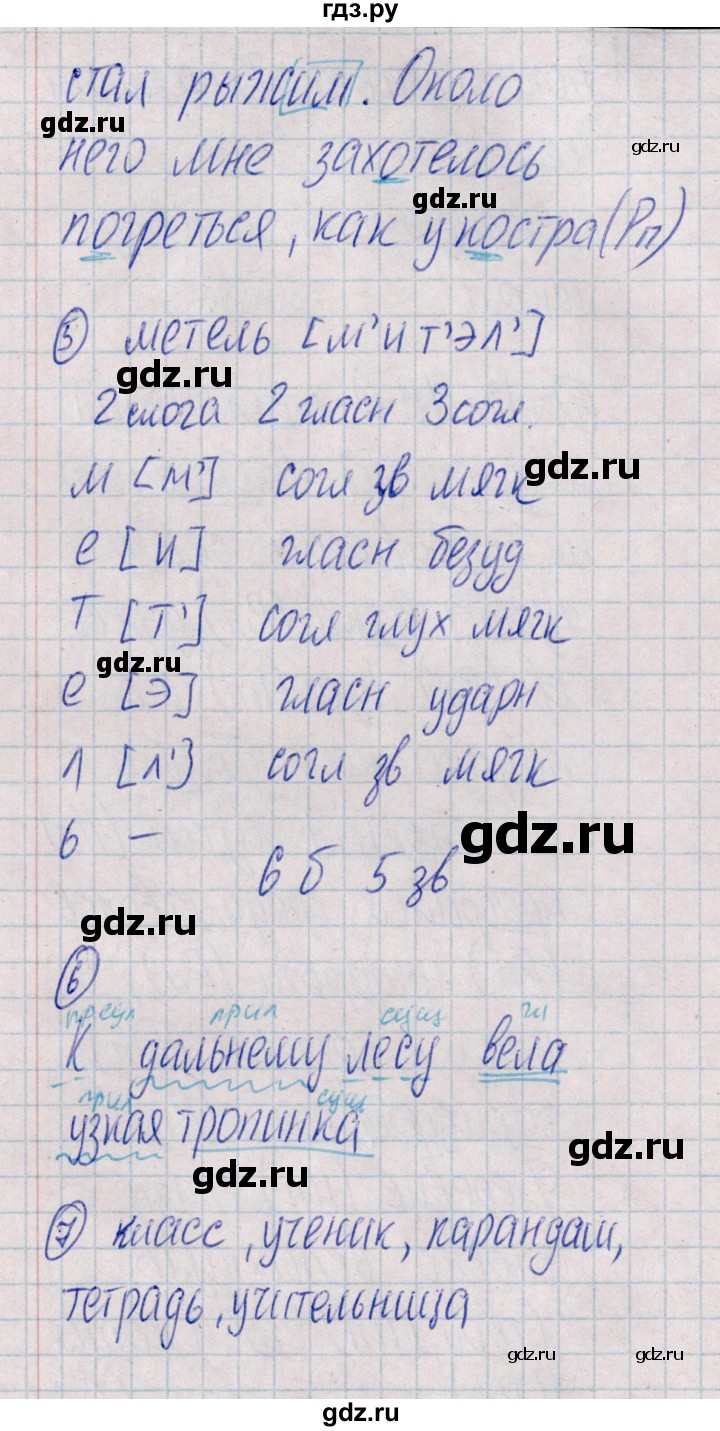 гдз.ру
стал рыжим. Около
gdz.ru
него мне захотелось
gdz.ru
gdz.ru
погреться, как у костра (Рп)
5 метель [м'ит'эл']
gdz.ru
2 слога 2 гласн 3 согл.
gdz.ru
м [м'] согл зв мягк
е [и] гласн безуд
т [т'] согл глух мягк
gdz.ru
е [э] гласн ударн
л [л'] согл зв мягк
ь —
gdz.ru
6 б 5 зв
gdz.ru
6
предл прил сущ гл
К дальнему лесу вела
прил сущ
узкая тропинка
gdz.ru
gdz.ru
7 класс, ученик, карандаш,
тетрадь, учительница
gdz.ru
gdz.ru
gdz.ru